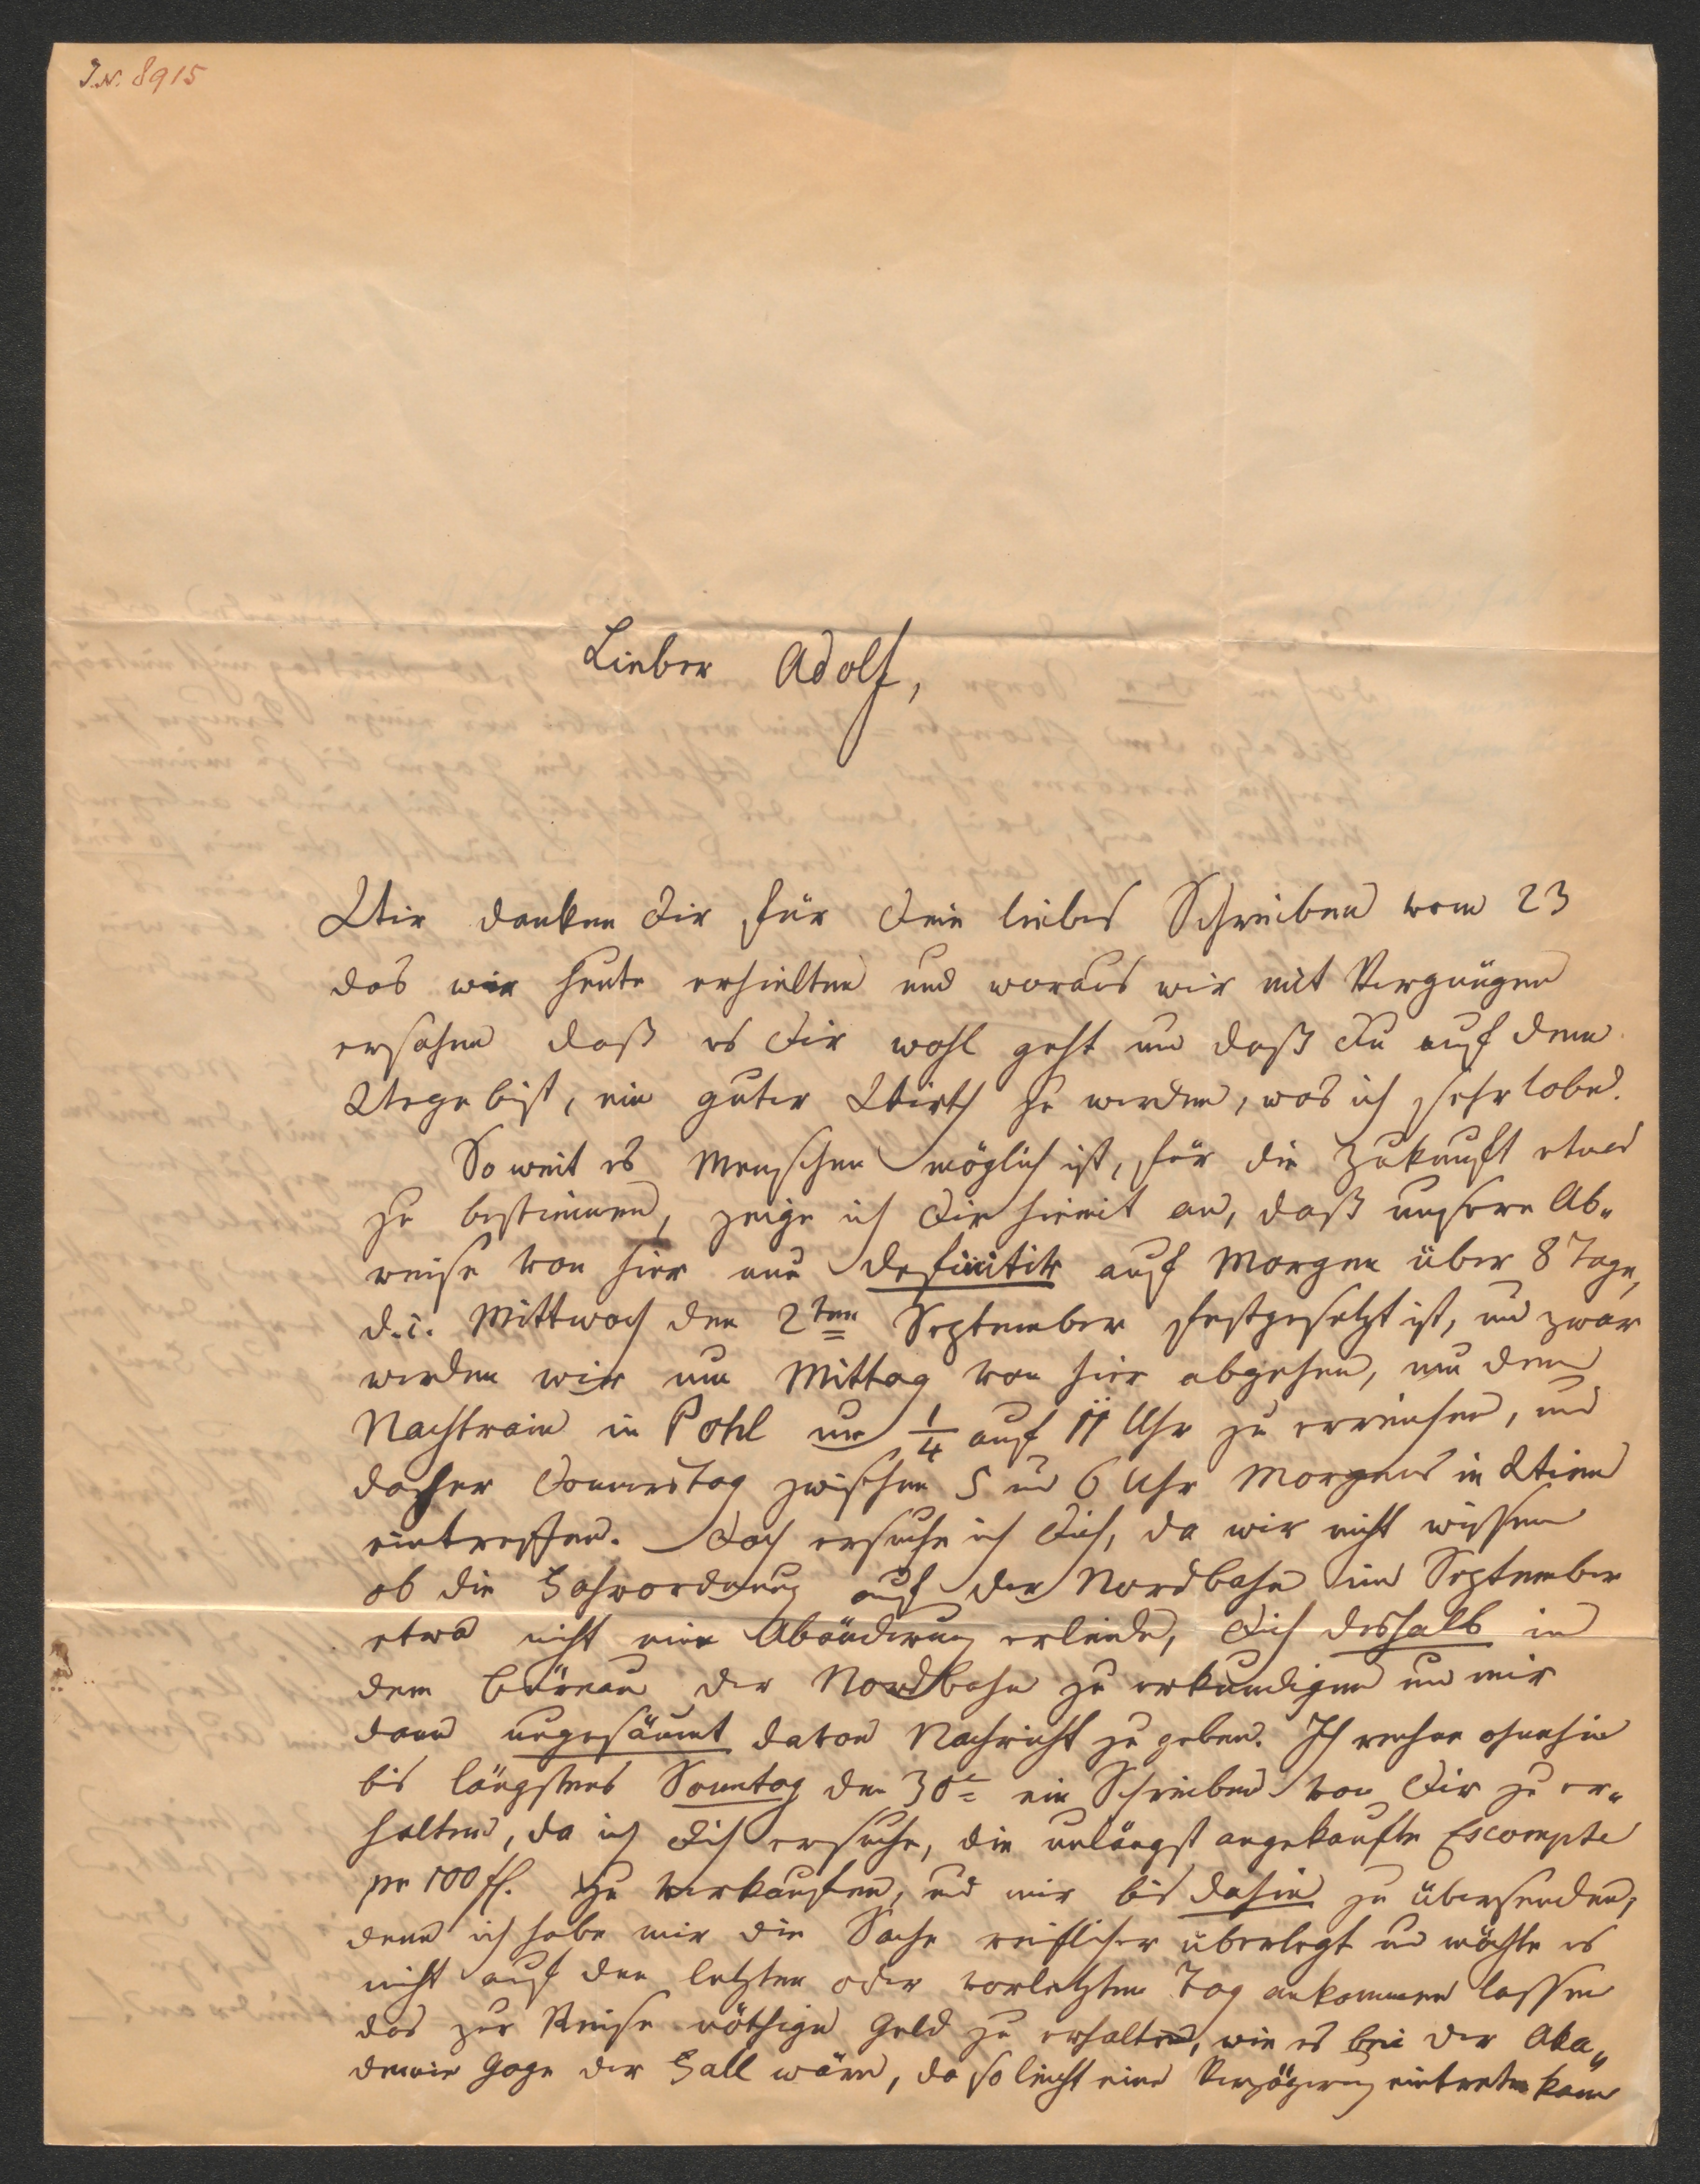 I.N. 8915
Lieber Adolf,
Wir danken Dir für Dein liebes Schreiben vom 23
das wir heute erhielten und woraus wir mit Vergnügen
ersahen daß es Dir wohl geht und daß Du auf dem
Wege bist, ein guter Wirth zu werden, was ich sehr lobe.
So weit es Menschen möglich ist, für die Zukunft etwas
zu bestimmen, zeige ich Dir hiemit an, daß unsere Ab„
reise von hier nun definitiv auf Morgen über 8 Tage,
d. i. Mittwoch den 2ten September festgesetzt ist, und zwar
werden wir um Mittag von hier abgehen, um den
Nachtrain in Pohl um 1/4 auf 11 Uhr zu erreichen, und
daher Donnerstag zwischen 5 und 6 Uhr Morgens in Wien
eintreffen. Doch ersuche ich Dich, da wir nicht wissen
ob die Fahrordnung auf der Nordbahn im September
etwa nicht eine Abänderung erleide, Dich deshalb in
dem Büreau der Nordbahn zu erkundigen und mir
dann ungesäumt davon Nachricht zu geben. Ich rechne ohnehin
bis längstens Sonntag den 30t ein Schreiben von Dir zu er„
halten, da ich Dich ersuche, die unlängst angekaufte Escompte
pr 100 fl. zu verkaufen, und mir bis dahin zu übersenden,
denn ich habe mir die Sache reiflicher überlegt und möchte es
nicht auf den letzten oder vorletzten Tag ankommen lassen
das zur Reise nöthige Geld zu erhalten, wie es bei der Aka„
demie Gage der Fall wäre, da so leicht eine Verzögerung eintreten kann